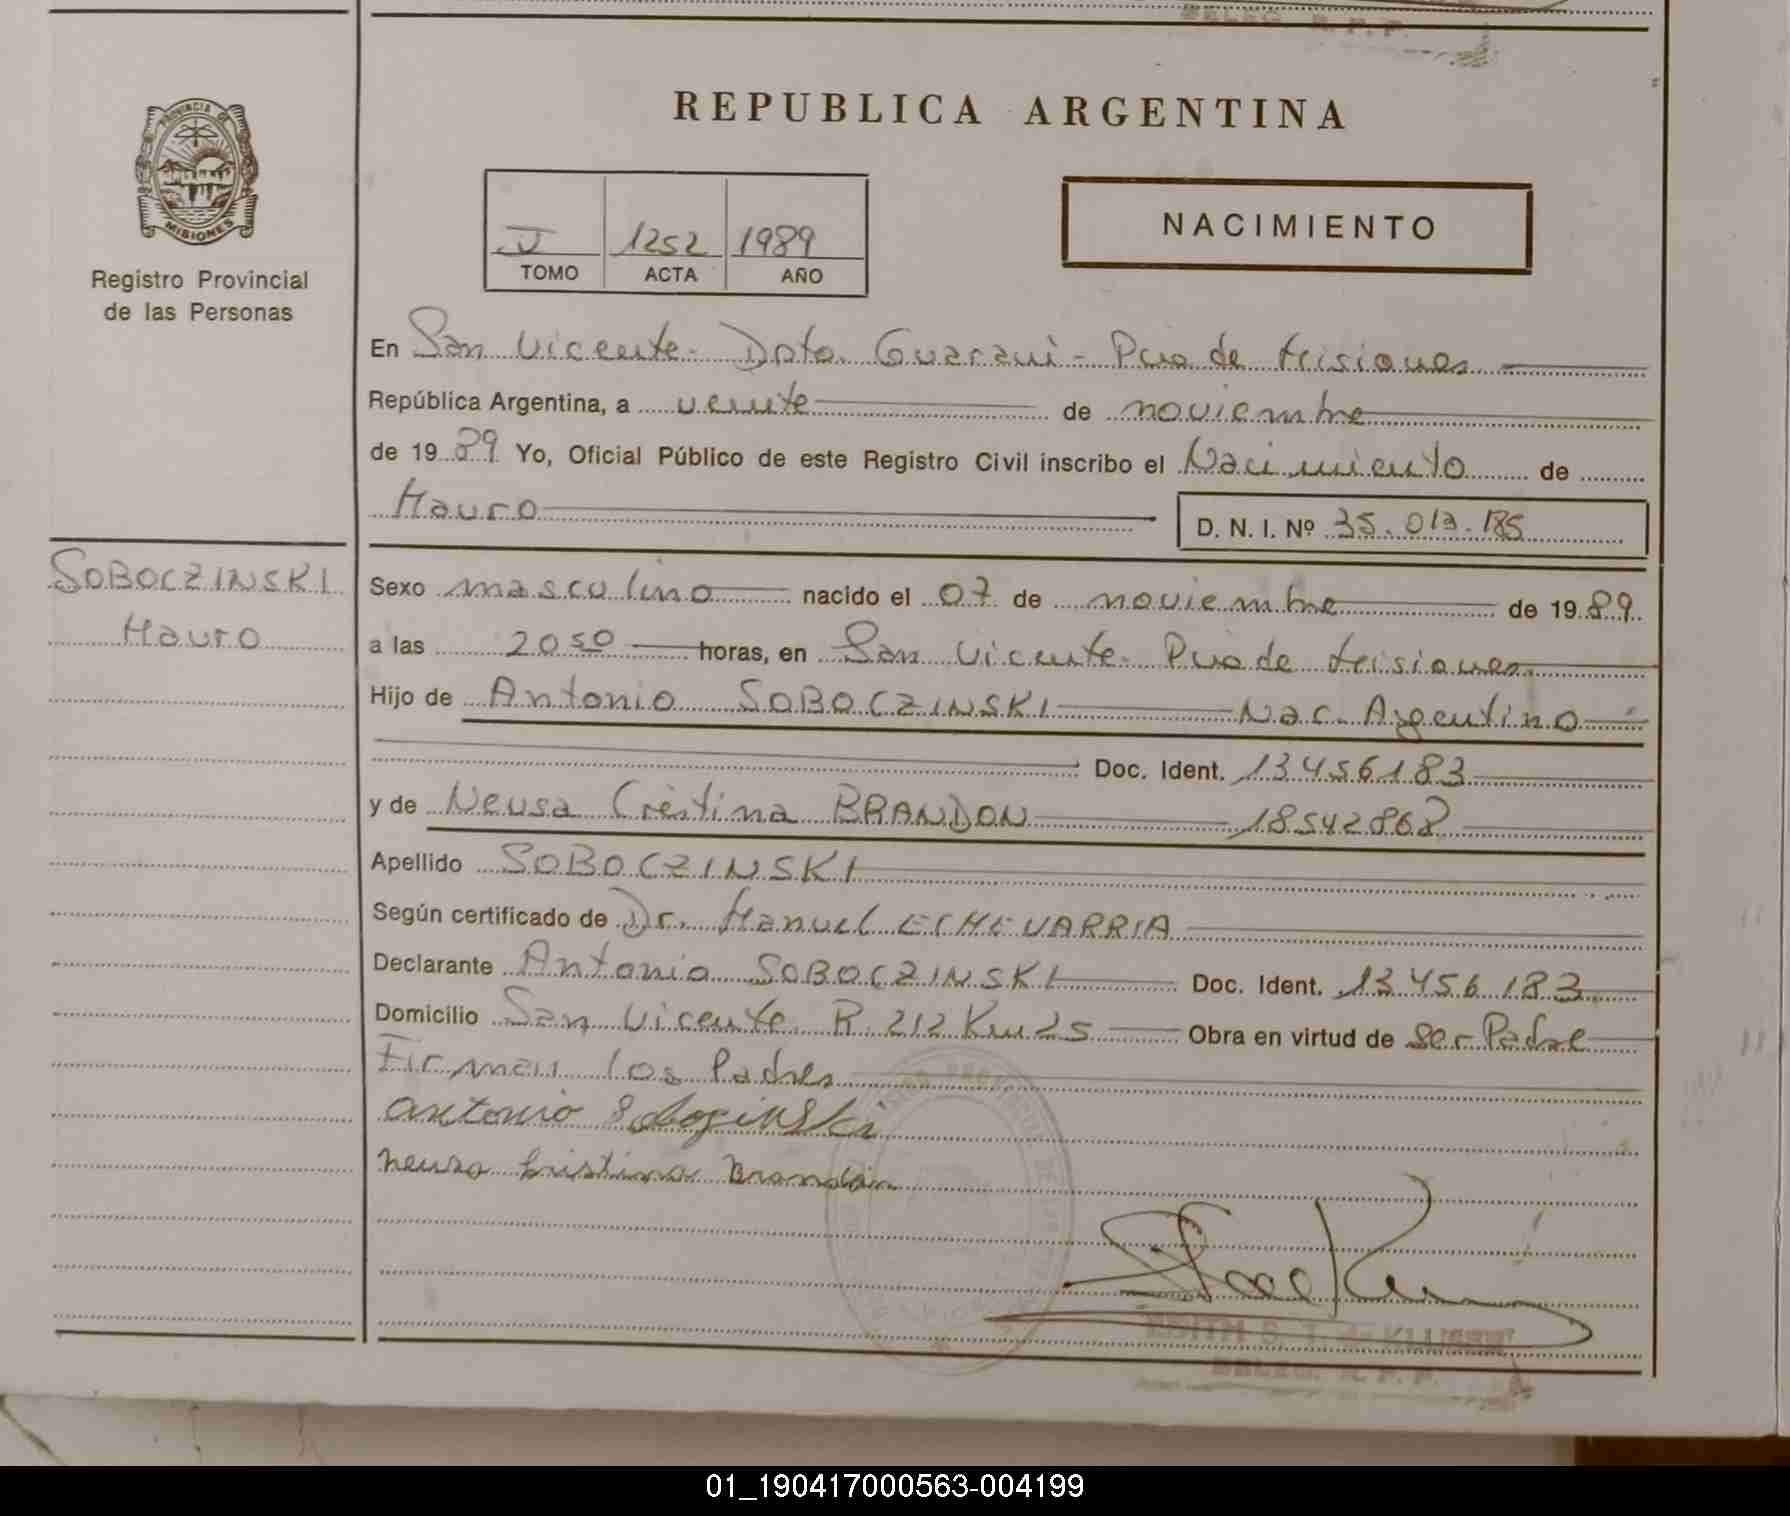 DELEG. R. P. P.
REPUBLICA ARGENTINA
PROVINCIA DE
MISIONES
Registro Provincial
de las Personas
1252 1989
TOMO ACTA AÑO
NACIMIENTO
En San Vicente - Dpto. Guaraní - Pcia de Misiones
República Argentina, a veinte de noviembre
de 1989 Yo, Oficial Público de este Registro Civil inscribo el Nacimiento de
Mauro
D. N. I. Nº 35.013.185
SOBOCZINSKI
Mauro
Sexo masculino nacido el 07 de noviembre de 1989
a las 20 50 horas, en San Vicente - Pcia de Misiones
Hijo de Antonio SOBOCZINSKI Nac. Argentino
Doc. Ident. 13456183
y de Neusa Cristina BRANDON 18542868
Apellido SOBOCZINSKI
Según certificado de Dr. Manuel ECHEVARRIA
Declarante Antonio SOBOCZINSKI Doc. Ident. 13456183
Domicilio San Vicente R. 212 Km 25 Obra en virtud de Ser Padre
Firman los Padres
antonio
neusa cristina Brandon
EDITH S. T. de
DELEG. R. P. P.
01_190417000563-004199